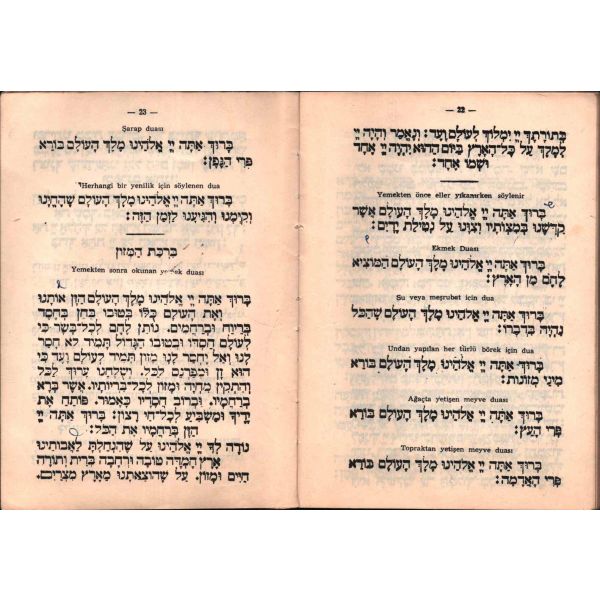 — 22 —
בְּתוֹרָתֶךָ יְיָ יִמְלוֹךְ לְעוֹלָם וָעֶד: וְנֶאֱמַר וְהָיָה יְיָ
לְמֶלֶךְ עַל כָּל־הָאָרֶץ בַּיּוֹם הַהוּא יִהְיֶה יְיָ אֶחָד
וּשְׁמוֹ אֶחָד:
Yemekten önce eller yıkanırken söylenir
בָּרוּךְ אַתָּה יְיָ אֱלֹהֵינוּ מֶלֶךְ הָעוֹלָם אֲשֶׁר
קִדְּשָׁנוּ בְּמִצְוֹתָיו וְצִוָּנוּ עַל נְטִילַת יָדָיִם:
Ekmek Duası
בָּרוּךְ אַתָּה יְיָ אֱלֹהֵינוּ מֶלֶךְ הָעוֹלָם הַמּוֹצִיא
לֶחֶם מִן הָאָרֶץ:
Su veya meşrubat için dua
בָּרוּךְ אַתָּה יְיָ אֱלֹהֵינוּ מֶלֶךְ הָעוֹלָם שֶׁהַכֹּל
נִהְיָה בִּדְבָרוֹ:
Undan yapılan her türlü börek için dua
בָּרוּךְ אַתָּה יְיָ אֱלֹהֵינוּ מֶלֶךְ הָעוֹלָם בּוֹרֵא
מִינֵי מְזוֹנוֹת:
Ağaçta yetişen meyve duası
בָּרוּךְ אַתָּה יְיָ אֱלֹהֵינוּ מֶלֶךְ הָעוֹלָם בּוֹרֵא
פְּרִי הָעֵץ:
Topraktan yetişen meyve duası
בָּרוּךְ אַתָּה יְיָ אֱלֹהֵינוּ מֶלֶךְ הָעוֹלָם בּוֹרֵא
פְּרִי הָאֲדָמָה:
— 23 —
Şarap duası
בָּרוּךְ אַתָּה יְיָ אֱלֹהֵינוּ מֶלֶךְ הָעוֹלָם בּוֹרֵא
פְּרִי הַגֶּפֶן:
Herhangi bir yenilik için söylenen dua
בָּרוּךְ אַתָּה יְיָ אֱלֹהֵינוּ מֶלֶךְ הָעוֹלָם שֶׁהֶחֱיָנוּ
וְקִיְּמָנוּ וְהִגִּיעָנוּ לַזְּמַן הַזֶּה:
בִּרְכַּת הַמָּזוֹן
Yemekten sonra okunan yemek duası
בָּרוּךְ אַתָּה יְיָ אֱלֹהֵינוּ מֶלֶךְ הָעוֹלָם הַזָּן אוֹתָנוּ
וְאֶת הָעוֹלָם כֻּלּוֹ בְּטוּבוֹ בְּחֵן בְּחֶסֶד
בְּרֵיוַח וּבְרַחֲמִים. נוֹתֵן לֶחֶם לְכָל־בָּשָׂר כִּי
לְעוֹלָם חַסְדּוֹ וּבְטוּבוֹ הַגָּדוֹל תָּמִיד לֹא חָסַר
לָנוּ וְאַל יֶחְסַר לָנוּ מָזוֹן תָּמִיד לְעוֹלָם וָעֶד כִּי
הוּא זָן וּמְפַרְנֵס לַכֹּל. וְשֻׁלְחָנוֹ עָרוּךְ לַכֹּל
וְהִתְקִין מִחְיָה וּמָזוֹן לְכָל־בְּרִיּוֹתָיו. אֲשֶׁר בָּרָא
בְרַחֲמָיו. וּכְרוֹב חֲסָדָיו כָּאָמוּר. פּוֹתֵחַ אֶת
יָדֶיךָ וּמַשְׂבִּיעַ לְכָל־חַי רָצוֹן: בָּרוּךְ אַתָּה יְיָ
הַזָּן בְּרַחֲמָיו אֶת הַכֹּל:
נוֹדֶה לְךָ יְיָ אֱלֹהֵינוּ עַל שֶׁהִנְחַלְתָּ לַאֲבוֹתֵינוּ
אֶרֶץ חֶמְדָּה טוֹבָה וּרְחָבָה בְּרִית וְתוֹרָה
חַיִּים וּמָזוֹן. עַל שֶׁהוֹצֵאתָנוּ מֵאֶרֶץ מִצְרַיִם.